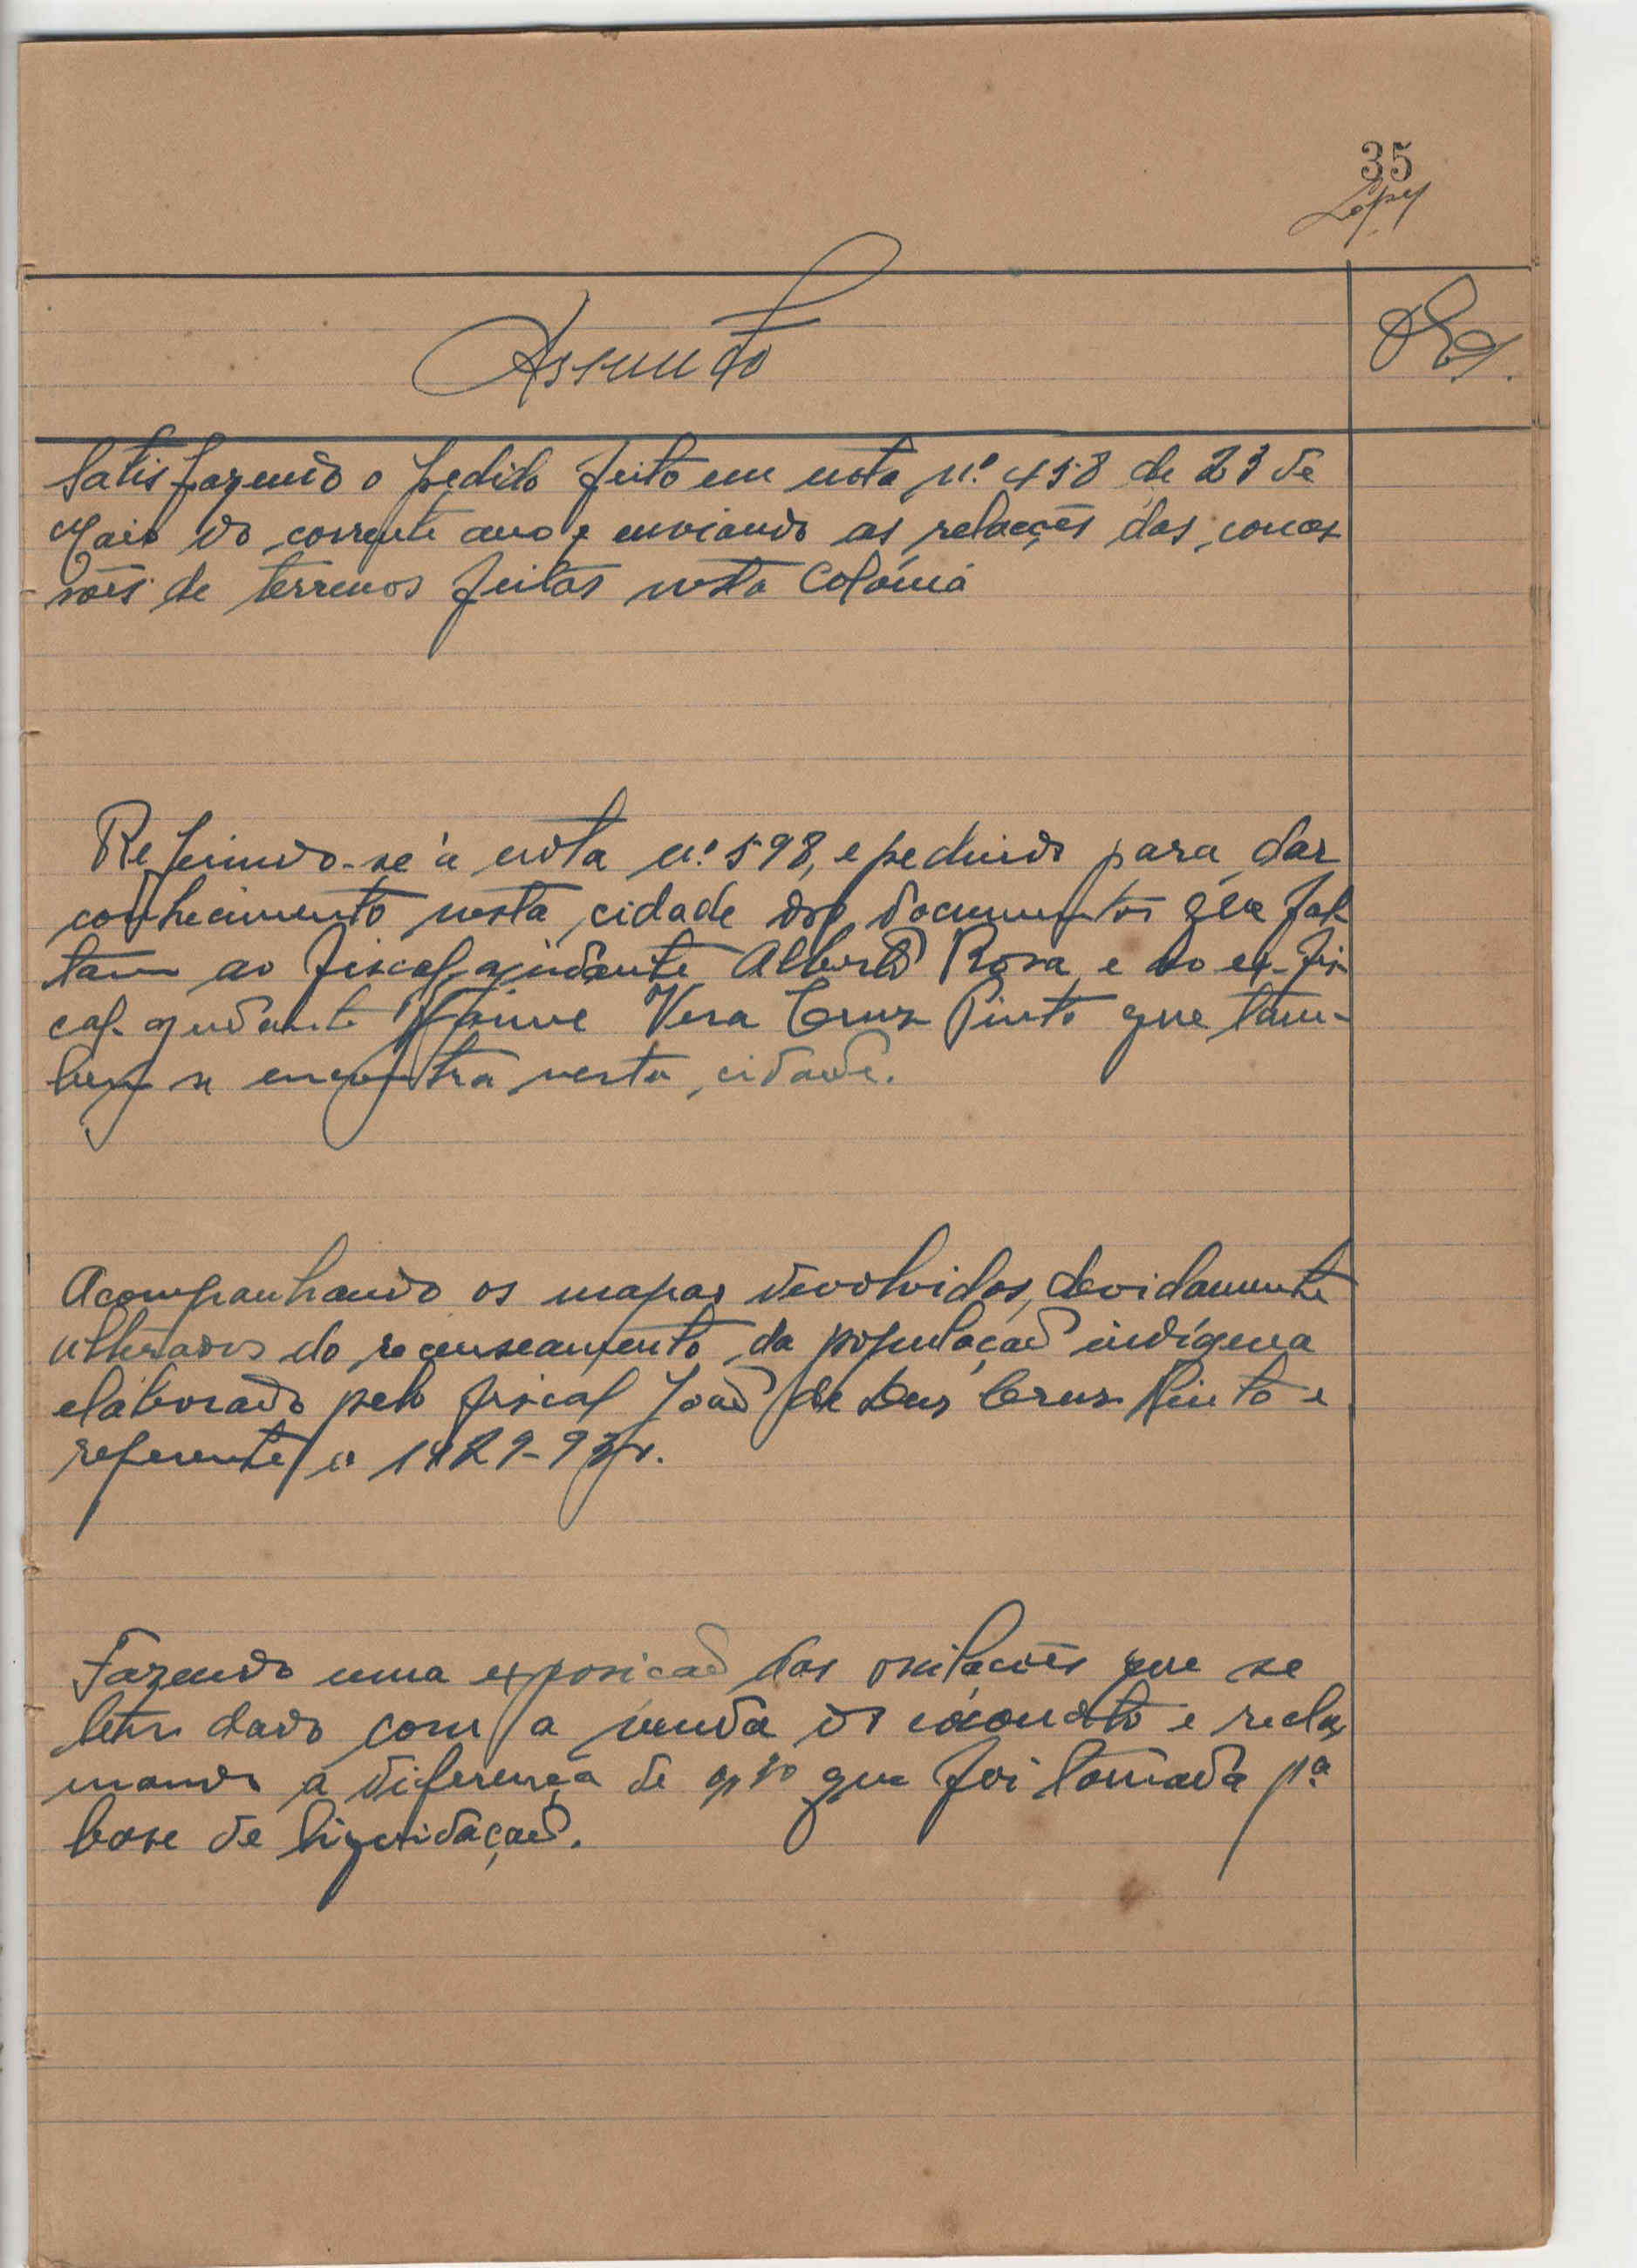 35
Lopes
Assunto
Obs.
Satisfazendo o pedido feito em nota n.º 458 de 23 de
Maio do corrente ano e enviando as relações das conces
sões de terrenos feitas nesta Colónia
Referindo-se á nota n.º 598, e pedindo para dar
conhecimento nesta cidade dos documentos que fal-
tam ao fiscal ajudante Alberto Rosa e ao ex-fis-
cal-ajudante Jaime Vera Cruz Pinto que tam-
bem se encontra nesta cidade.
Acompanhando os mapas devolvidos, devidamente
alterados do recenseamento da população indígena
elaborado pelo fiscal João de Deus Cruz Pinto e
referente a 1929-930.
Fazendo uma exposição das oscilações que se
tem dado com a venda do e recla
mando a diferença de que foi tomada p.ª
base de liquidação.